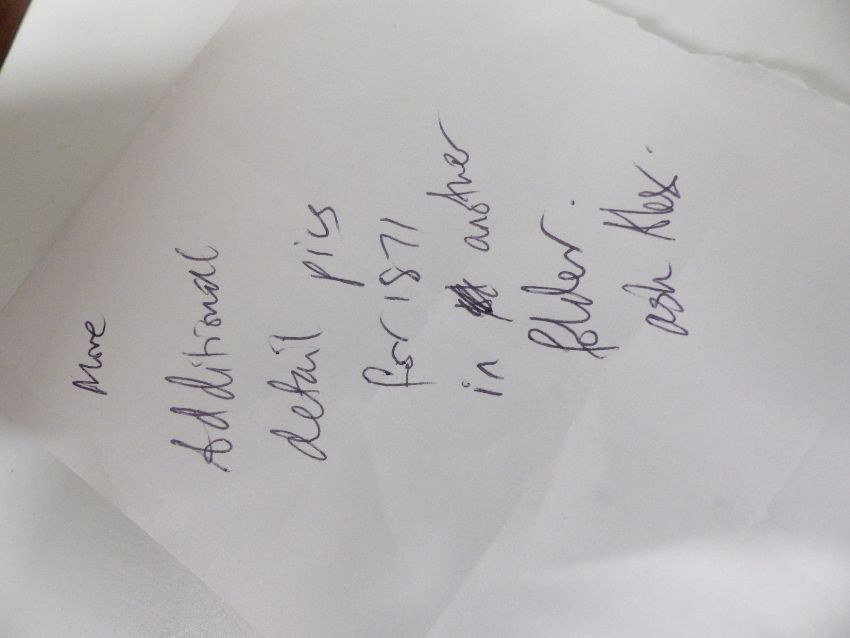 more
Additional
detail pics
for 1871
in another
folder.
ask Alex.